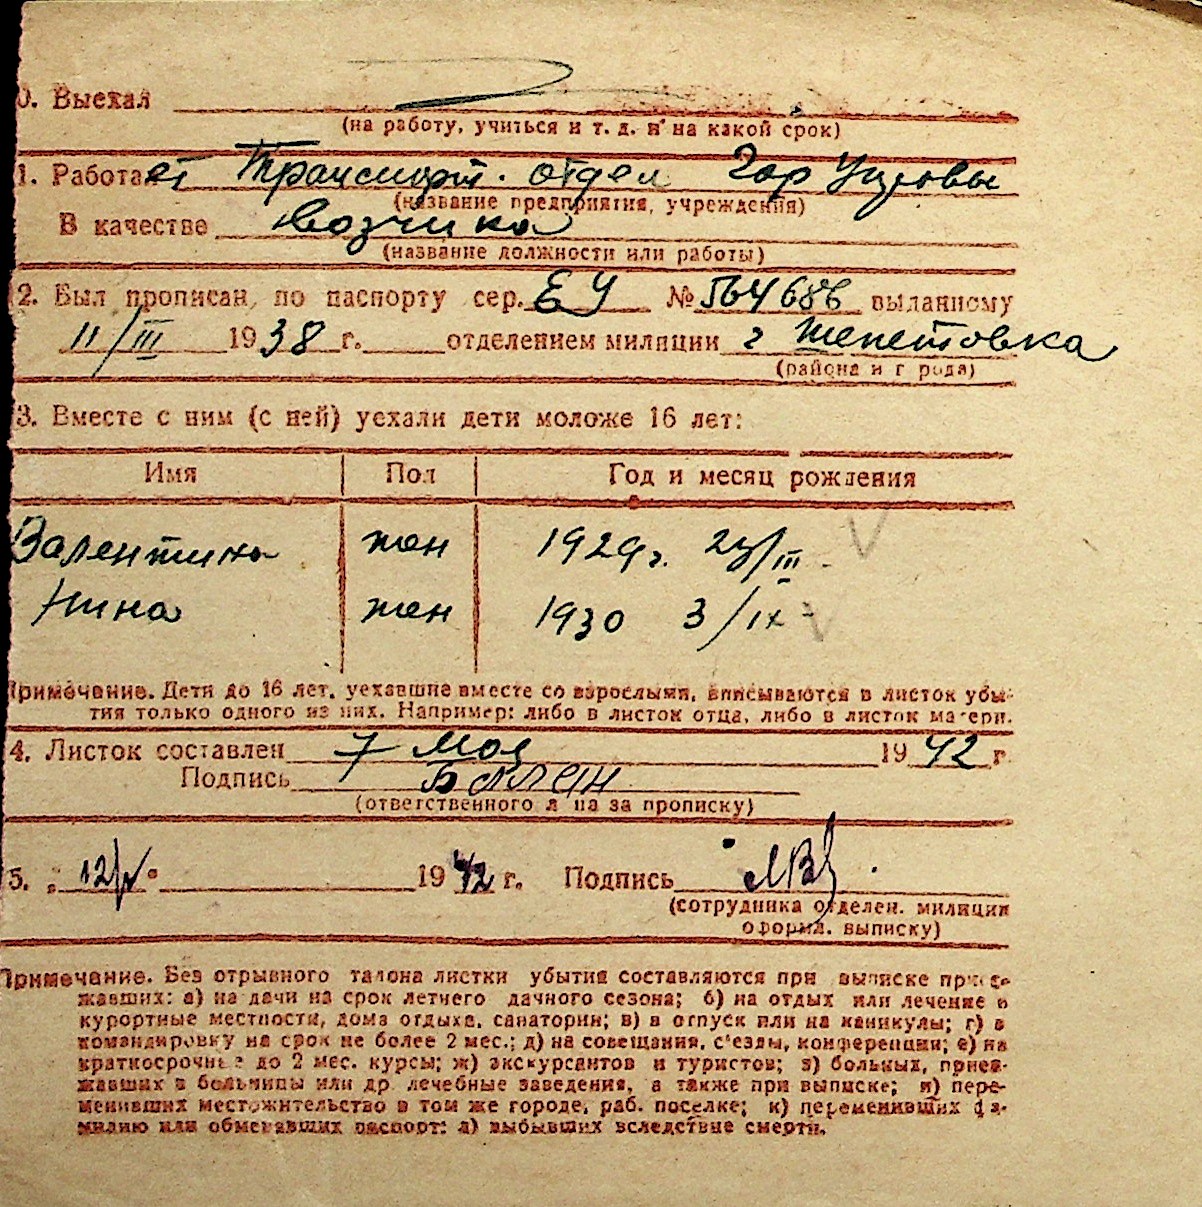 0. Выехал
(на работу, учиться и т. д. и на какой срок)
1. Работает Транспорт. отдел Гор
(название предприятия, учреждения)
В качестве возчика
(название должности или работы)
2. Был прописан по паспорту сер. ЕУ № 564686 выданному
11/III 1938 г. отделением милиции г Шепетовка
(района и города)
3. Вместе с ним (с ней) уехали дети моложе 16 лет:
Имя Пол Год и месяц рождения
Валентина жен 1929 г. 23/III
Нина жен 1930 3/IX
Примечание. Дети до 16 лет, уехавшие вместе со взрослыми, вписываются в листок убы-
тия только одного из них. Например: либо в листок отца, либо в листок матери.
4. Листок составлен 7 Мая 1942 г.
Подпись
(ответственного лица за прописку)
5. „12/V" 1942 г. Подпись
(сотрудника отделен. милиции
оформл. выписку)
Примечание. Без отрывного талона листки убытия составляются при выписке приез-
жавших: а) на дачи на срок летнего дачного сезона; б) на отдых или лечение в
курортные местности, дома отдыха, санатории; в) в отпуск или на каникулы; г) в
командировку на срок не более 2 мес.; д) на совещания, с'езды, конференции; е) на
краткосрочные до 2 мес. курсы; ж) экскурсантов и туристов; з) больных, приез-
жавших в больницы или др. лечебные заведения, а также при выписке; и) пере-
менивших местожительство в том же городе, раб. поселке; к) переменивших фа-
милию или обменявших паспорт; л) выбывших вследствие смерти.